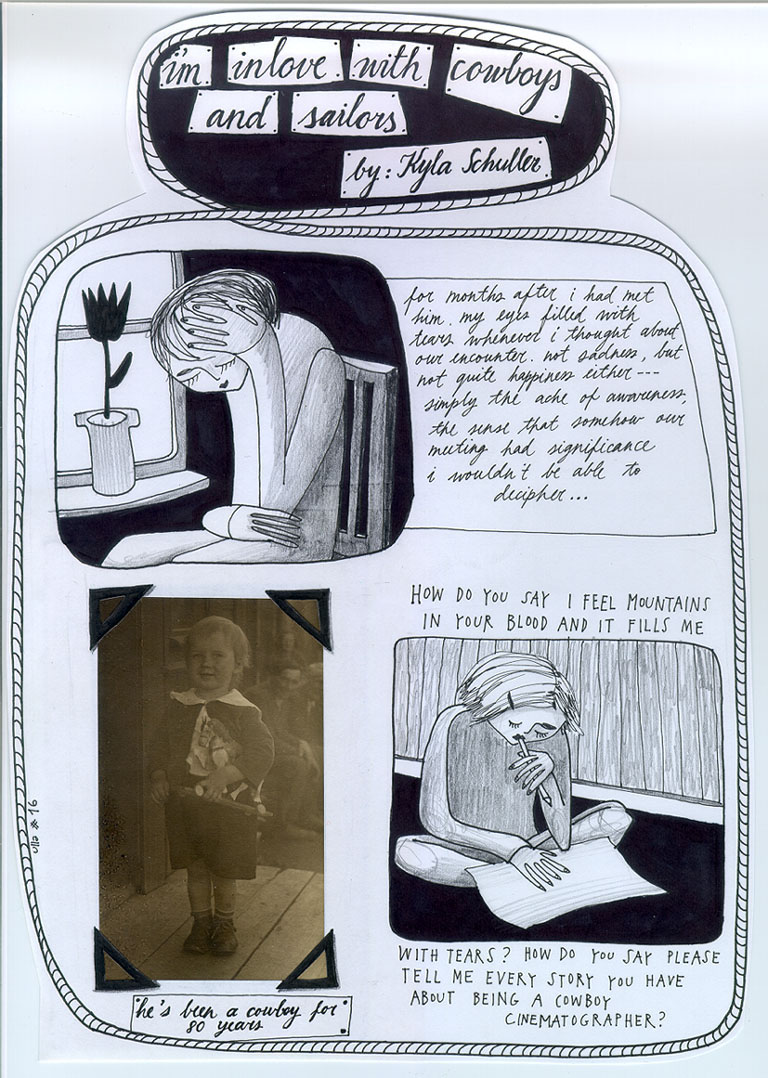 i'm inlove with cowboys
and sailors
by: Kyla Schuller
for months after i had met
him. my eyes filled with
tears whenever i thought about
our encounter. not sadness, but
not quite happiness either---
simply the ache of awareness.
the sense that somehow our
meeting had significance
i wouldn't be able to
decipher...
HOW DO YOU SAY I FEEL MOUNTAINS
IN YOUR BLOOD AND IT FILLS ME
WITH TEARS? HOW DO YOU SAY PLEASE
TELL ME EVERY STORY YOU HAVE
ABOUT BEING A COWBOY
CINEMATOGRAPHER?
he's been a cowboy for
80 years